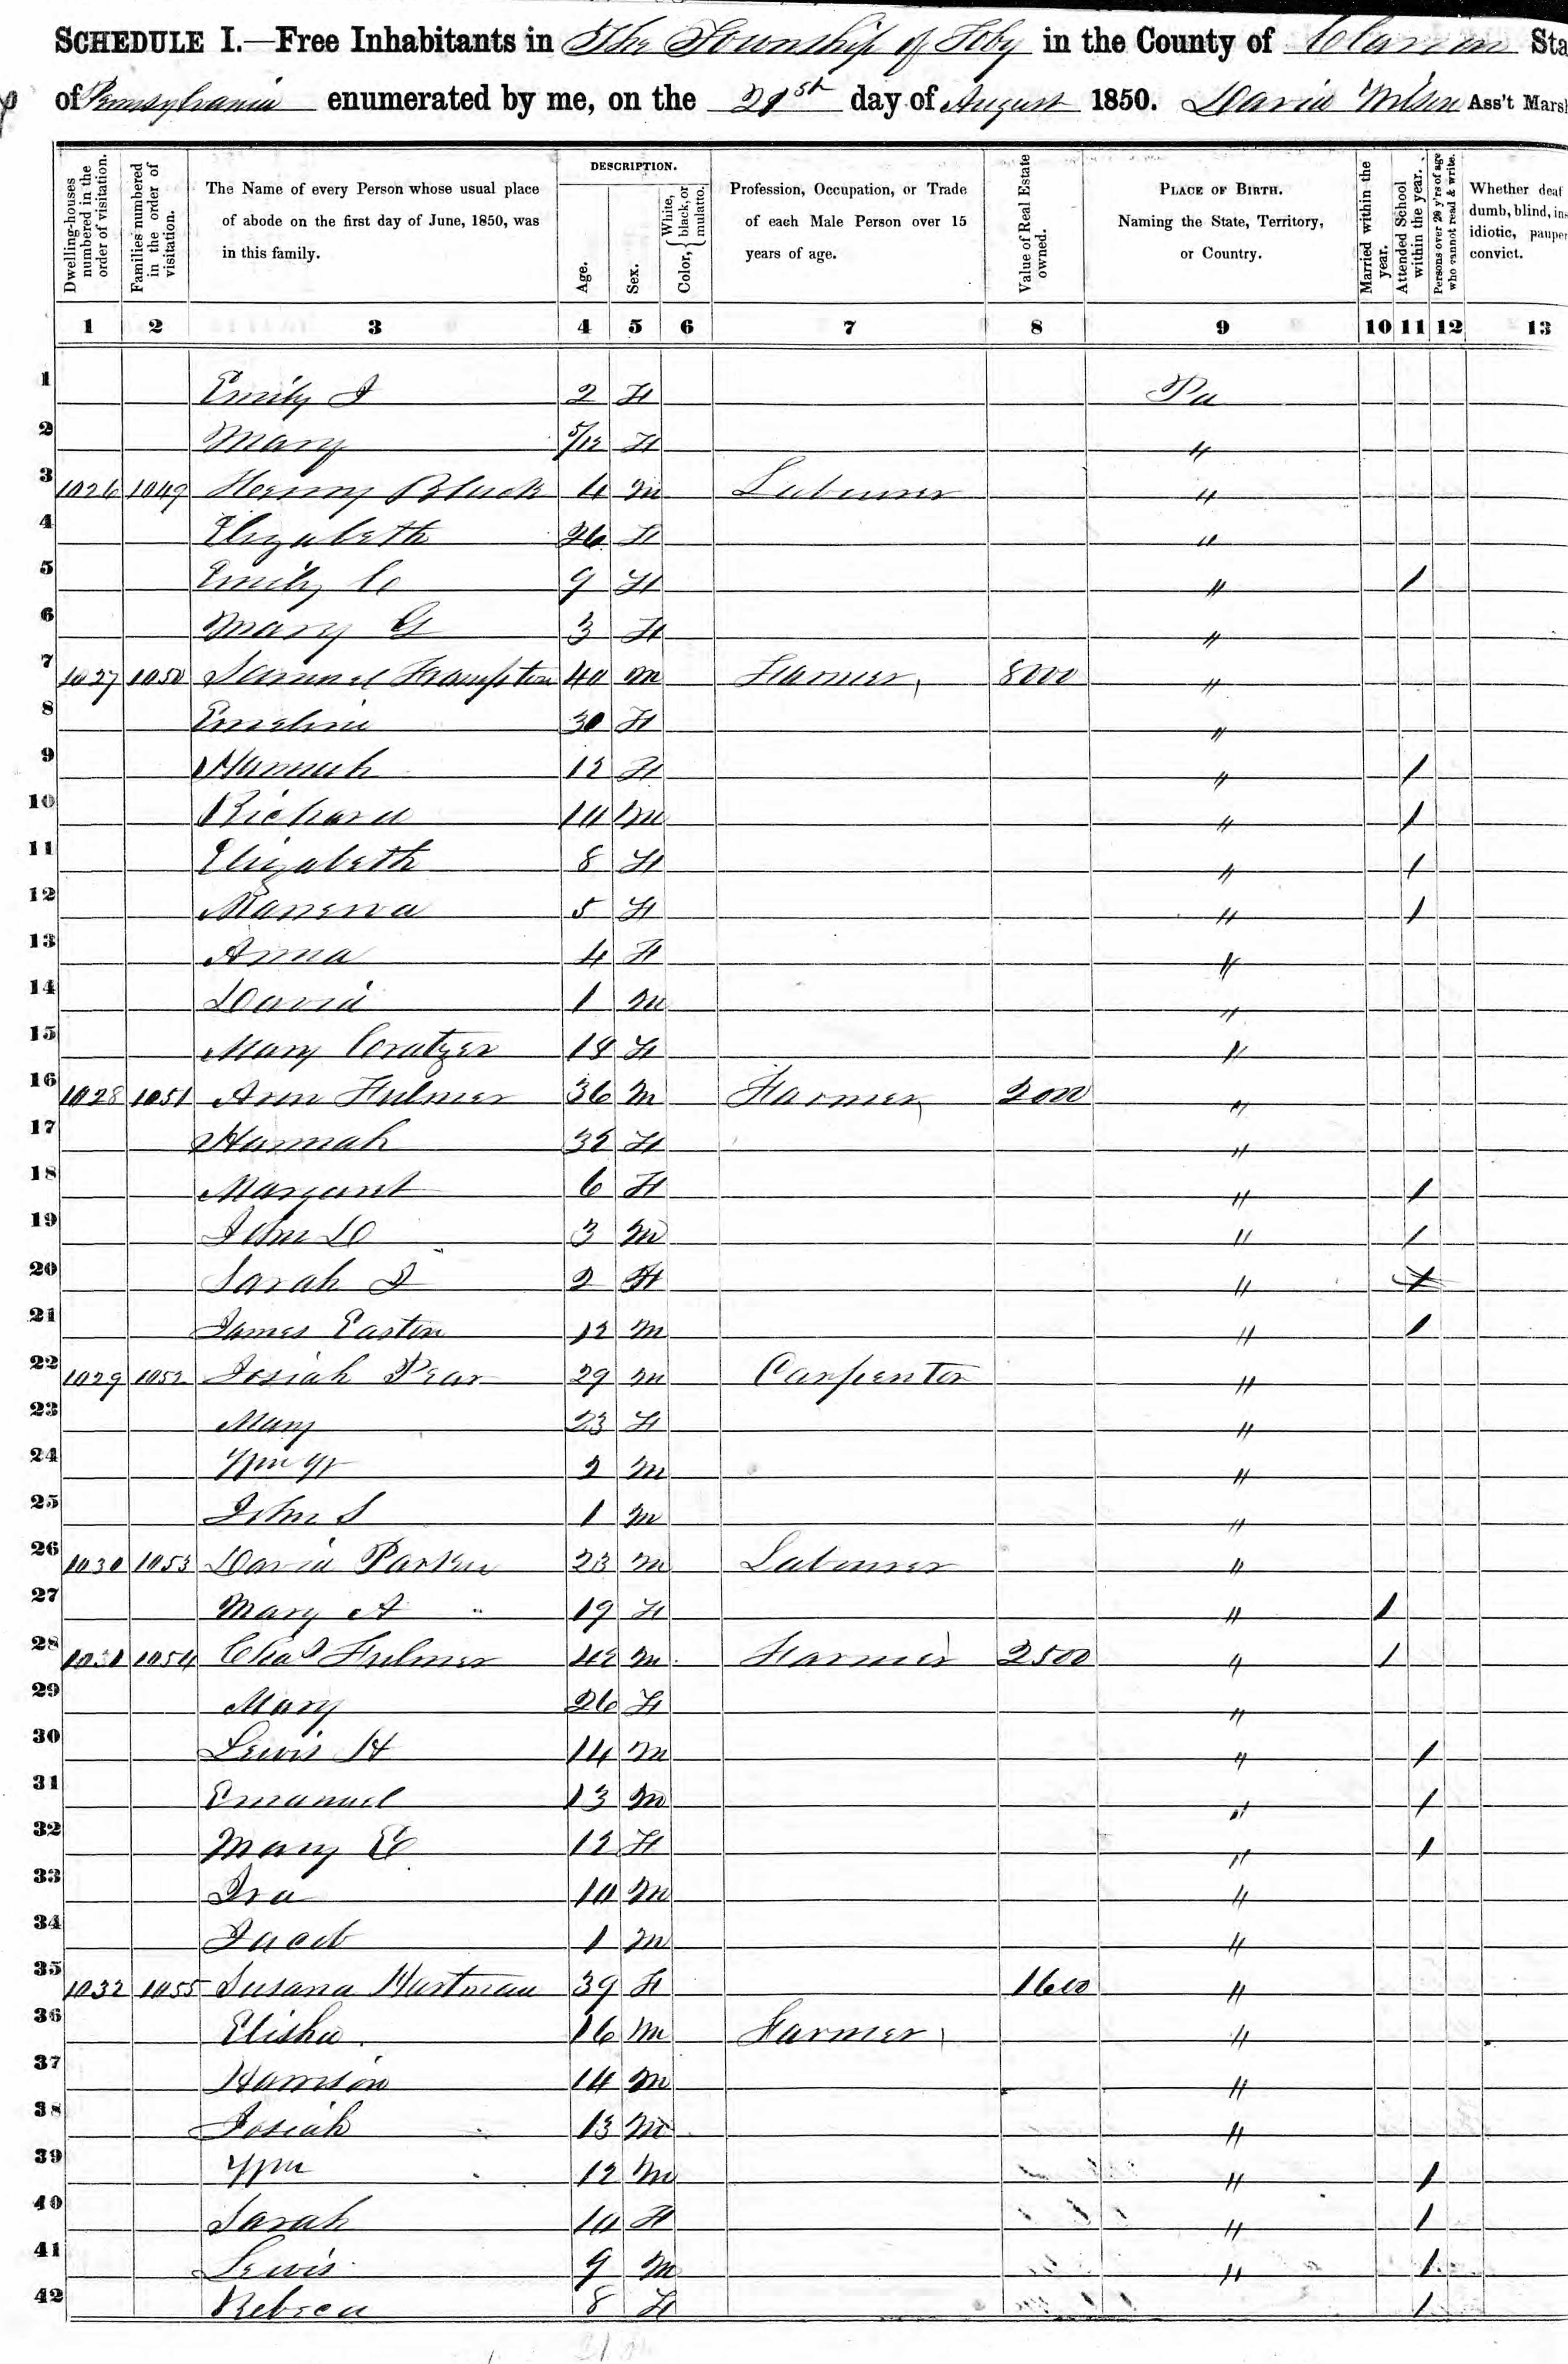 SCHEDULE I.—Free Inhabitants in The Township of Toby in the County of Clarion Sta
of Pennsylvania enumerated by me, on the 21st day of August 1850. David Wilson Ass't Mars
Dwelling-houses numbered in the order of visitation.
Families numbered in the order of visitation.
The Name of every Person whose usual place of abode on the first day of June, 1850, was in this family.
DESCRIPTION.
Age.
Sex.
Color, { White, black, or mulatto.
Profession, Occupation, or Trade of each Male Person over 15 years of age.
Value of Real Estate owned.
PLACE OF BIRTH. Naming the State, Territory, or Country.
Married within the year.
Attended School within the year.
Persons over 20 y'rs of age who cannot read & write.
Whether deaf dumb, blind, ins idiotic, pauper convict.
1 2 3 4 5 6 7 8 9 10 11 12 13
1 Emily J 2 F Pa
2 Mary 5/12 F "
3 1026 1049 Henry Black 4 M Labourer "
4 Elizabeth 26 F "
5 Emily C 9 F " 1
6 Mary G 3 F "
7 1027 1050 Samuel Frampton 40 M Farmer 8000 "
8 Emeline 30 F "
9 Hannah 12 F " 1
10 Richard 10 M " 1
11 Elizabeth 8 F " 1
12 5 F " 1
13 Anna 4 F "
14 David 1 M "
15 Mary Cratzer 18 F "
16 1028 1051 Aron Fulmer 36 M Farmer 2000 "
17 Hannah 32 F "
18 Margaret 6 F " 1
19 John D 3 M " 1
20 Sarah J 2 F " 1
21 James Easten 12 M " 1
22 1029 1052 Josiah Pear 29 M Carpenter "
23 Mary 23 F "
24 Wm W 2 M "
25 John S 1 M "
26 1030 1053 David Parker 23 M Labourer "
27 Mary A " 19 F " 1
28 1031 1054 Chas Fulmer 42 M Farmer 2500 " 1
29 Mary 26 F "
30 Lewis H 14 M " 1
31 Emanuel 13 M " 1
32 Mary E 12 F " 1
33 Ira 10 M "
34 Jacob 1 M "
35 1032 1055 Susana Hartman 39 F 1600 "
36 Elisha 16 M Farmer "
37 Harrison 14 M "
38 Josiah 13 M "
39 Wm 12 M " 1
40 Sarah 10 F " 1
41 Lewis 9 M " 1
42 Rebeca 8 F 1